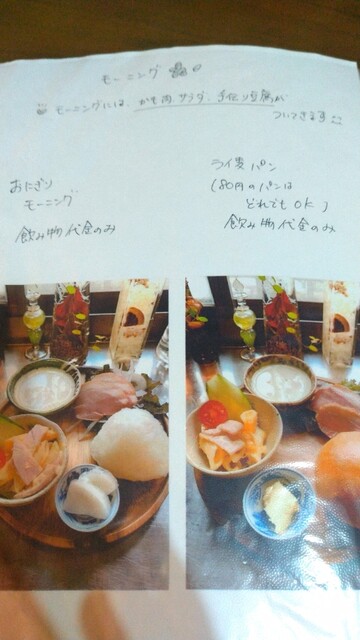 モーニング
モーニングには、かも肉、サラダ、手作り豆腐が
ついてきます
おにぎり
モーニング
飲み物代金のみ
ライ麦パン
(80円のパンは
どれでもOK)
飲み物代金のみ